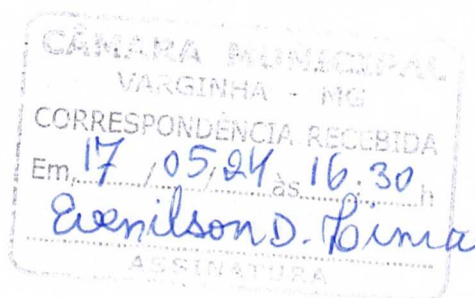 CÂMARA MUNICIPAL
VARGINHA - MG
CORRESPONDÊNCIA RECEBIDA
Em, 17 / 05 / 24 às 16:30 h
Evenilson D.
ASSINATURA